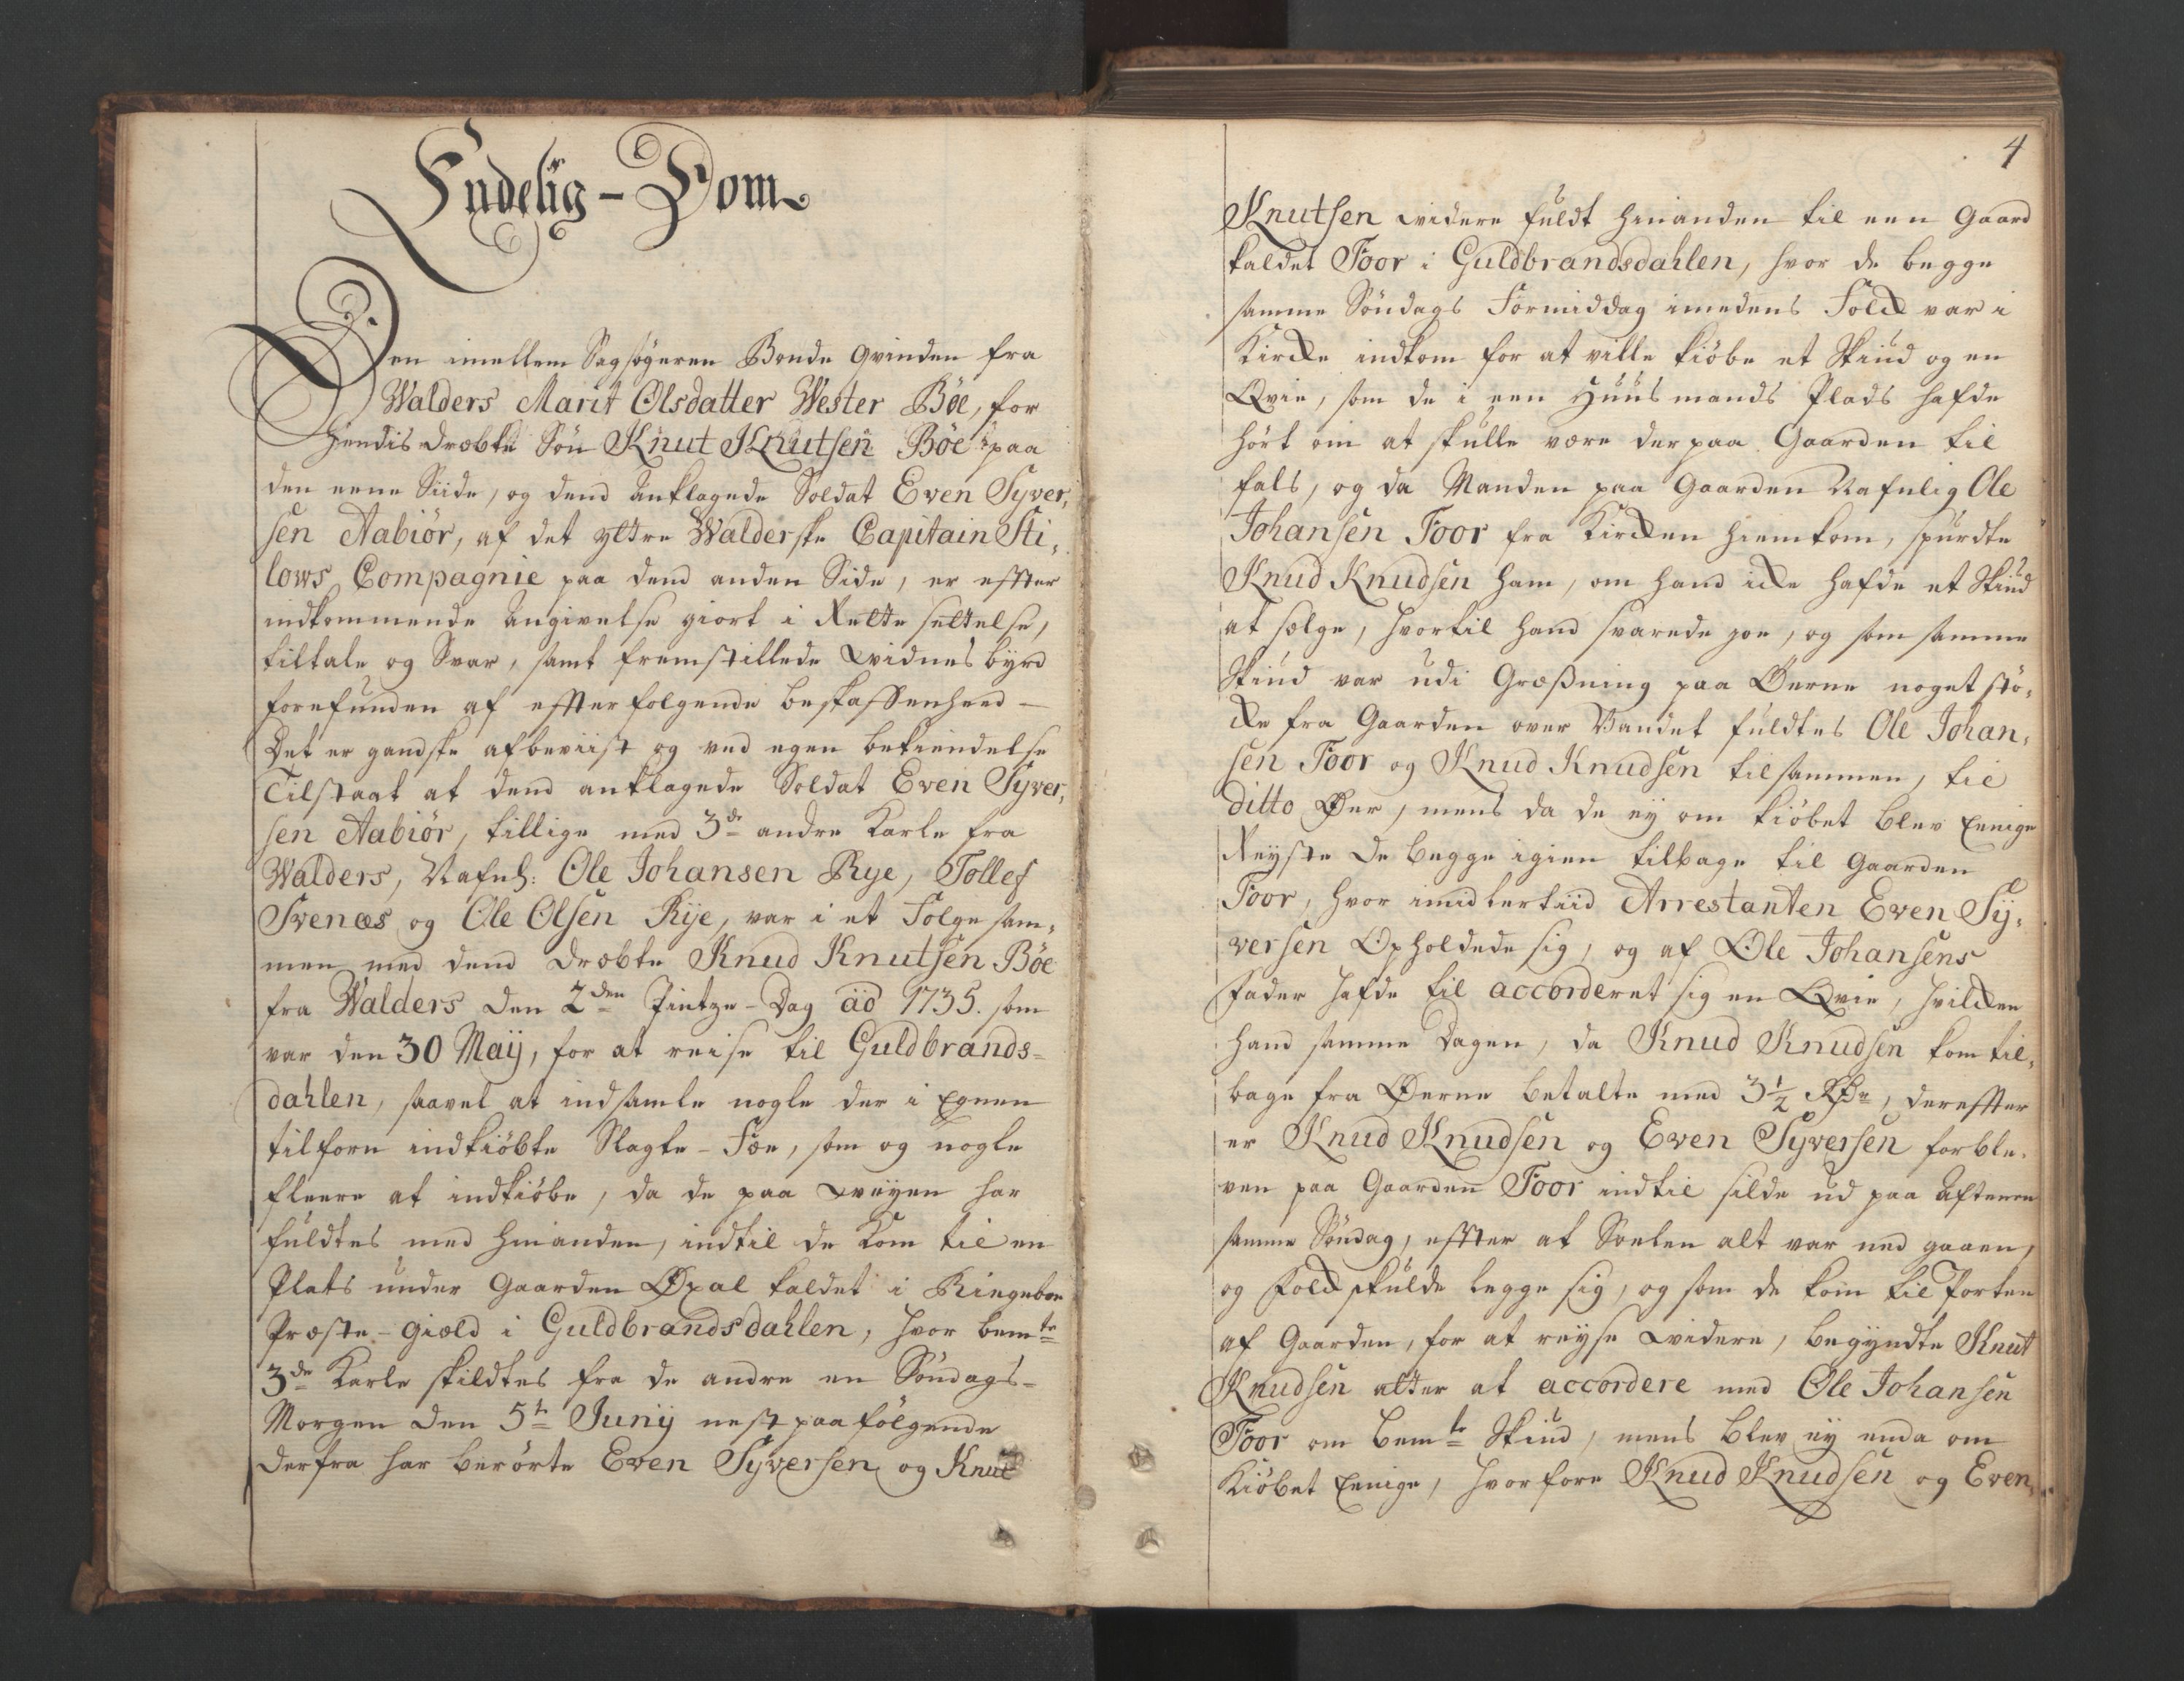 Endelig-Dom
Den imellem Sagsögeren Bonde Qvinden fra
Walders Marit Olsdatter Wester Böe, for
hendis dræbte Sön Knut Knutsen Böe paa
den eene Siide, og dend Anklagede Soldat Even Syver,
sen Aabiör, af det ÿttre Walderske Capitain Sti,
lows Compagnie paa dend anden Side, er effter
indkommende Angivelse giort i Rette settelse,
tiltale og Svar, samt fremstillede Widnesbyrd
forefunden af effterfolgende beskaffenheed –
Det er gandske afbeviist og ved egen bekiendelse
Tilstaat at dend anklagede Soldat Even Syver,
sen Aabiör, tillige med 3de andre Karle fra
Walders, Nafnl: Ole Johansen Rye, Tollef
Svenæs og Ole Olsen Rije, var i et Folge sam,
men med dend dræbte Knud Knutsen Böe
fra Walders den 2den Pintze-Dag ao 1735. som
var den 30 Maij, for at reise til Guldbrands-
dahlen, saavel at indsamle nogle der i Egnen
tilforn indkiöbte Slagte-Fæe, som og nogle
fleere at indkiöbe, da de paa Weÿen har
fuldtes med hinanden, indtil de kom til en
Plats under Gaarden Øxal kaldet i Ringeboe
Præste-giæld i Guldbrandsdahlen, hvor bemte
3de Karle skildtes fra de andre en Söndags-
Morgen den 5te Junij nest paafölgende
derfra har berörte Even Syversen og Knut
4
Knutsen widere fuldt hinanden til een Gaard
kaldet Foor i Guldbrandsdahlen, hvor de begge
samme Söndags Formiddag imedens Folck var i
Kircke indkom for at ville kiöbe et Skiud og en
Qvie, som de i een Huusmands Plads hafde
hört om at skulle være der paa Gaarden til
fals, og da Manden paa Gaarden Nafnlig Ole
Johansen Foor fra Kircken hiemkom, spurdte
Knud Knudsen ham, om hand icke hafde et Skiud
at sælge, hvortil hand svarede joe, og som samme
Skiud var udi Græsning paa Øerne noget stö,
cke fra Gaarden over Vandet fuldtes Ole Johan,
sen Foor og Knud Knudsen tilsammen, til
ditto Øer, mens da de ey om kiöbet blev Eenige
Reyste de begge igien tilbage til Gaarden
Foor, hvor imidlertiid Arrestanten Even Sÿ,
versen Opholdede sig, og af Ole Johansens
Fader hafde til accorderet sig en Qvie, hvilcken
hand samme Dagen, da Knud Knudsen kom til,
bage fra Øerne betalte med 3 1/2 Rdr, dereffter
er Knud Knudsen og Even Syversen forble,
ven paa Gaarden Foor indtil silde ud paa Aftenen
samme Söndag, effter at Soelen alt var ned gaaen,
og Folck skulde legge sig, og som de kom til Porten
af Gaarden, for at reyse widere, begyndte Knut
Knudsen atter at accordere med Ole Johansen
Foor om bemte Skiud, mens blev ey enda om
Kiöbet Eenige, hvorfore Knud Knudsen og Even,